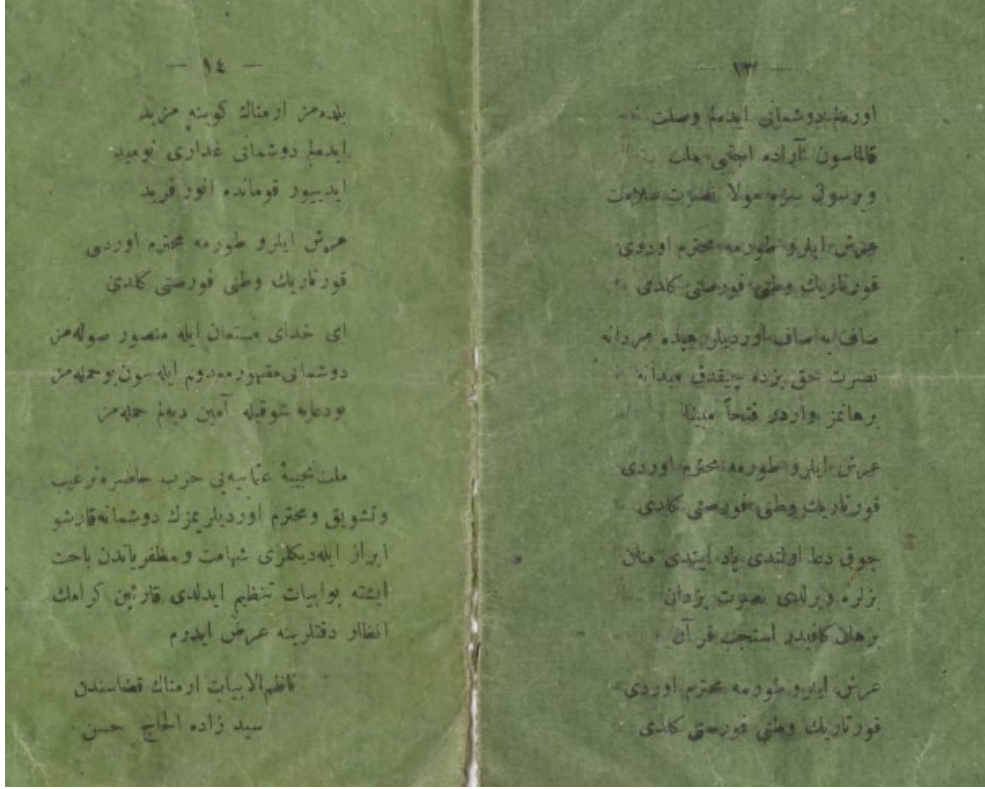 — ١٣ —
اورەلم دوشمانی ایدەلم وصلت
قالماسون آراده اجنبی ملت
ویرسون سزه مولا نصرت سلامت
عرش ایلرو طورمه محترم اوردوی
قورتاریك وطنی فورصتی کلدی
صاف به صاف اوردیلر مردانه
نصرت حق بزده چیقدق میدانه
برهانمز واردر فتحاً مبینا
عرش ایلرو طورمه محترم اوردی
قورتاریك وطنی فورصتی کلدی
چوق دعا اولندی یاد ایتدی منان
بزلره ویرلدی نصرت یزدان
برهان کافیدر استجب قرآن
عرش ایلرو طورمه محترم اوردی
قورتاریك وطنی فورصتی کلدی
— ١٤ —
بلده‌مز ارمناك کوینه مزید
ایدەلم دوشمانی غداری نومید
ایدییور قومانده انور فرید
عرش ایلرو طورمه محترم اوردی
قورتاریك وطنی فورصتی کلدی
ای خدای مستعان ایله منصور صوله‌مز
دوشمانی مقهور معدوم ایله‌سون بو حمله‌مز
بودعایه شوقیله آمین دیەلم جمله‌مز
ملت نجیبهٔ عثمانیه‌یی حرب حاضره ترغیب
وتشویق ومحترم اوردیلریمزك دوشمانه قارشو
ابراز ایله‌دیکلری شهامت و مظفریاتدن باحث
ایشته بوابیات تنظیم ایدلدی قارئین کرامك
انظار دقتلرینه عرض ایدرم
ناظم الابیات ارمناك قضاسندن
سید زاده الحاج حسن